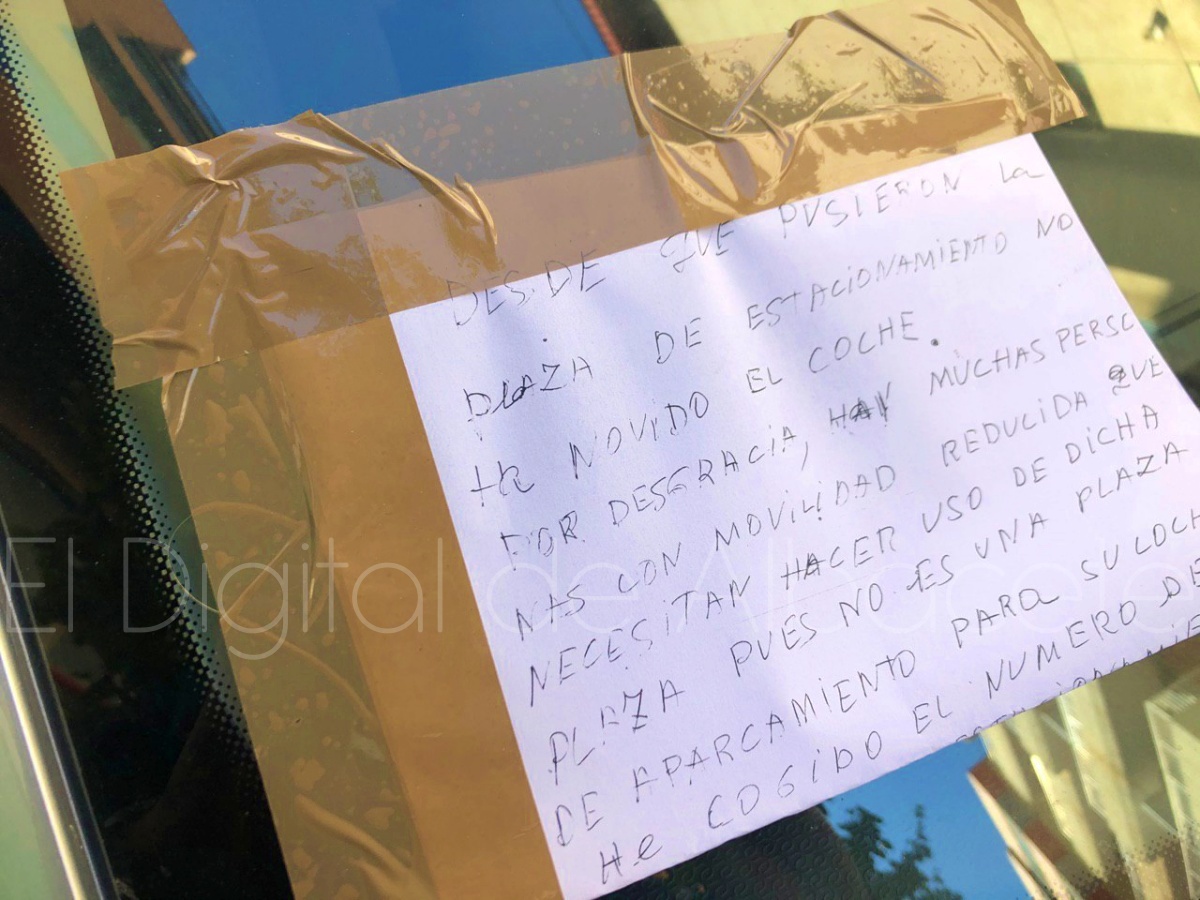 DESDE QUE PUSIERON La
PLAZA DE ESTACIONAMIENTO NO
Ha MOVIDO EL COCHE.
POR DESGRACIA, HAY MUCHAS PERSO
NAS CON MOVILIDAD REDUCIDA QUE
NECESITAN HACER USO DE DICHA
PLAZA PUES NO ES UNA PLAZA
DE APARCAMIENTO PARa SU COCH
He COGIDO EL NUMERO DE
El Digital de Albacete